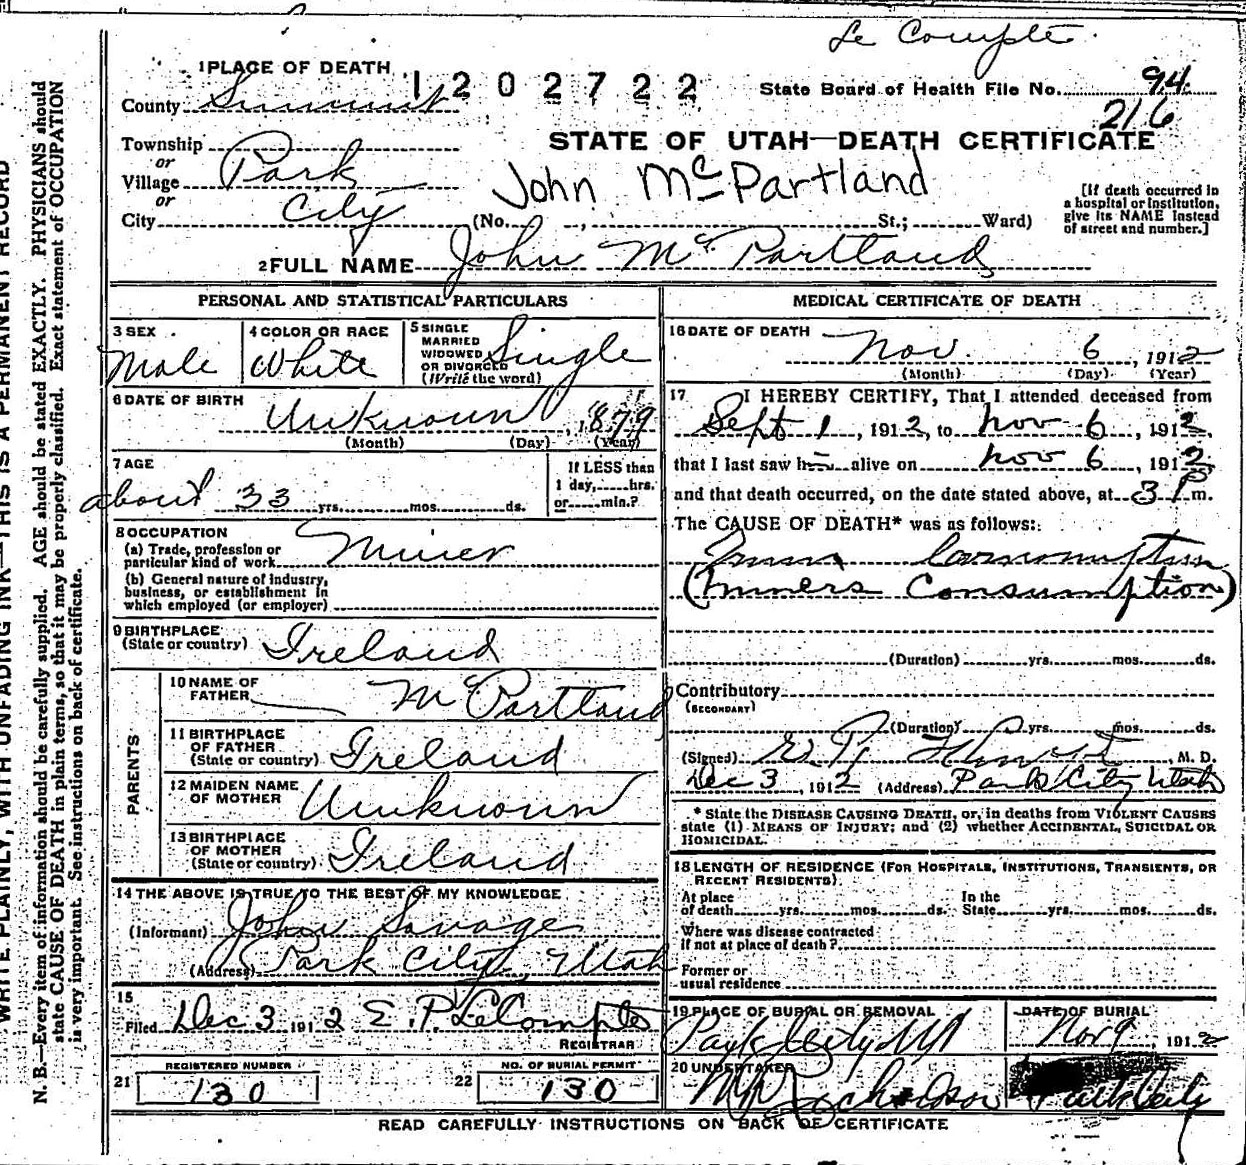 Le Compte
1 PLACE OF DEATH
1202722
State Board of Health File No. 94
County Summit
216
STATE OF UTAH—DEATH CERTIFICATE
Township
or
Village Park
or
City City
John McPartland
(No. , St.; Ward)
[If death occurred in
a hospital or institution,
give its NAME instead
of street and number.]
2 FULL NAME John McPartland
PERSONAL AND STATISTICAL PARTICULARS
3 SEX
Male
4 COLOR OR RACE
White
5 SINGLE
MARRIED
WIDOWED
OR DIVORCED
(Write the word)
Single
6 DATE OF BIRTH
Unknown, 1879
(Month) (Day) (Year)
7 AGE
about 33 yrs. mos. ds.
If LESS than
1 day, hrs.
or min.?
8 OCCUPATION
(a) Trade, profession or
particular kind of work Miner
(b) General nature of industry,
business, or establishment in
which employed (or employer)
9 BIRTHPLACE
(State or country) Ireland
PARENTS
10 NAME OF
FATHER McPartland
11 BIRTHPLACE
OF FATHER
(State or country) Ireland
12 MAIDEN NAME
OF MOTHER Unknown
13 BIRTHPLACE
OF MOTHER
(State or country) Ireland
14 THE ABOVE IS TRUE TO THE BEST OF MY KNOWLEDGE
(Informant) John Savage
(Address) Park City, Utah
15
Filed Dec 3 1912 E. P. LeCompte
REGISTRAR
REGISTERED NUMBER
21 130
NO. OF BURIAL PERMIT
22 130
MEDICAL CERTIFICATE OF DEATH
16 DATE OF DEATH
Nov. 6, 1912
(Month) (Day) (Year)
17 I HEREBY CERTIFY, That I attended deceased from
Sept 1, 1912, to Nov 6, 1912,
that I last saw him alive on Nov 6, 1912,
and that death occurred, on the date stated above, at 3 P m.
The CAUSE OF DEATH* was as follows:
Consumption
(Miners Consumption)
(Duration) yrs. mos. ds.
Contributory
(SECONDARY)
(Duration) yrs. mos. ds.
(Signed) M. D.
Dec 3, 1912 (Address) Park City Utah
* State the DISEASE CAUSING DEATH, or, in deaths from VIOLENT CAUSES
state (1) MEANS OF INJURY; and (2) whether ACCIDENTAL, SUICIDAL OR
HOMICIDAL.
18 LENGTH OF RESIDENCE (FOR HOSPITALS, INSTITUTIONS, TRANSIENTS, OR
RECENT RESIDENTS)
At place
of death yrs. mos. ds.
In the
State yrs. mos. ds.
Where was disease contracted
if not at place of death?
Former or
usual residence
19 PLACE OF BURIAL OR REMOVAL
Park City
DATE OF BURIAL
Nov 9, 1912
20 UNDERTAKER
Park City
READ CAREFULLY INSTRUCTIONS ON BACK OF CERTIFICATE
WRITE PLAINLY, WITH UNFADING INK—THIS IS A PERMANENT RECORD
N. B.—Every item of information should be carefully supplied. AGE should be stated EXACTLY. PHYSICIANS should
state CAUSE OF DEATH in plain terms, so that it may be properly classified. Exact statement of OCCUPATION
is very important. See instructions on back of certificate.